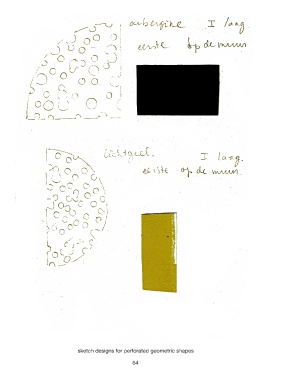 aubergine I laag.
eerste op de muur
lichtgeel. I laag.
eerste op de muur.
sketch designs for perforated geometric shapes
64